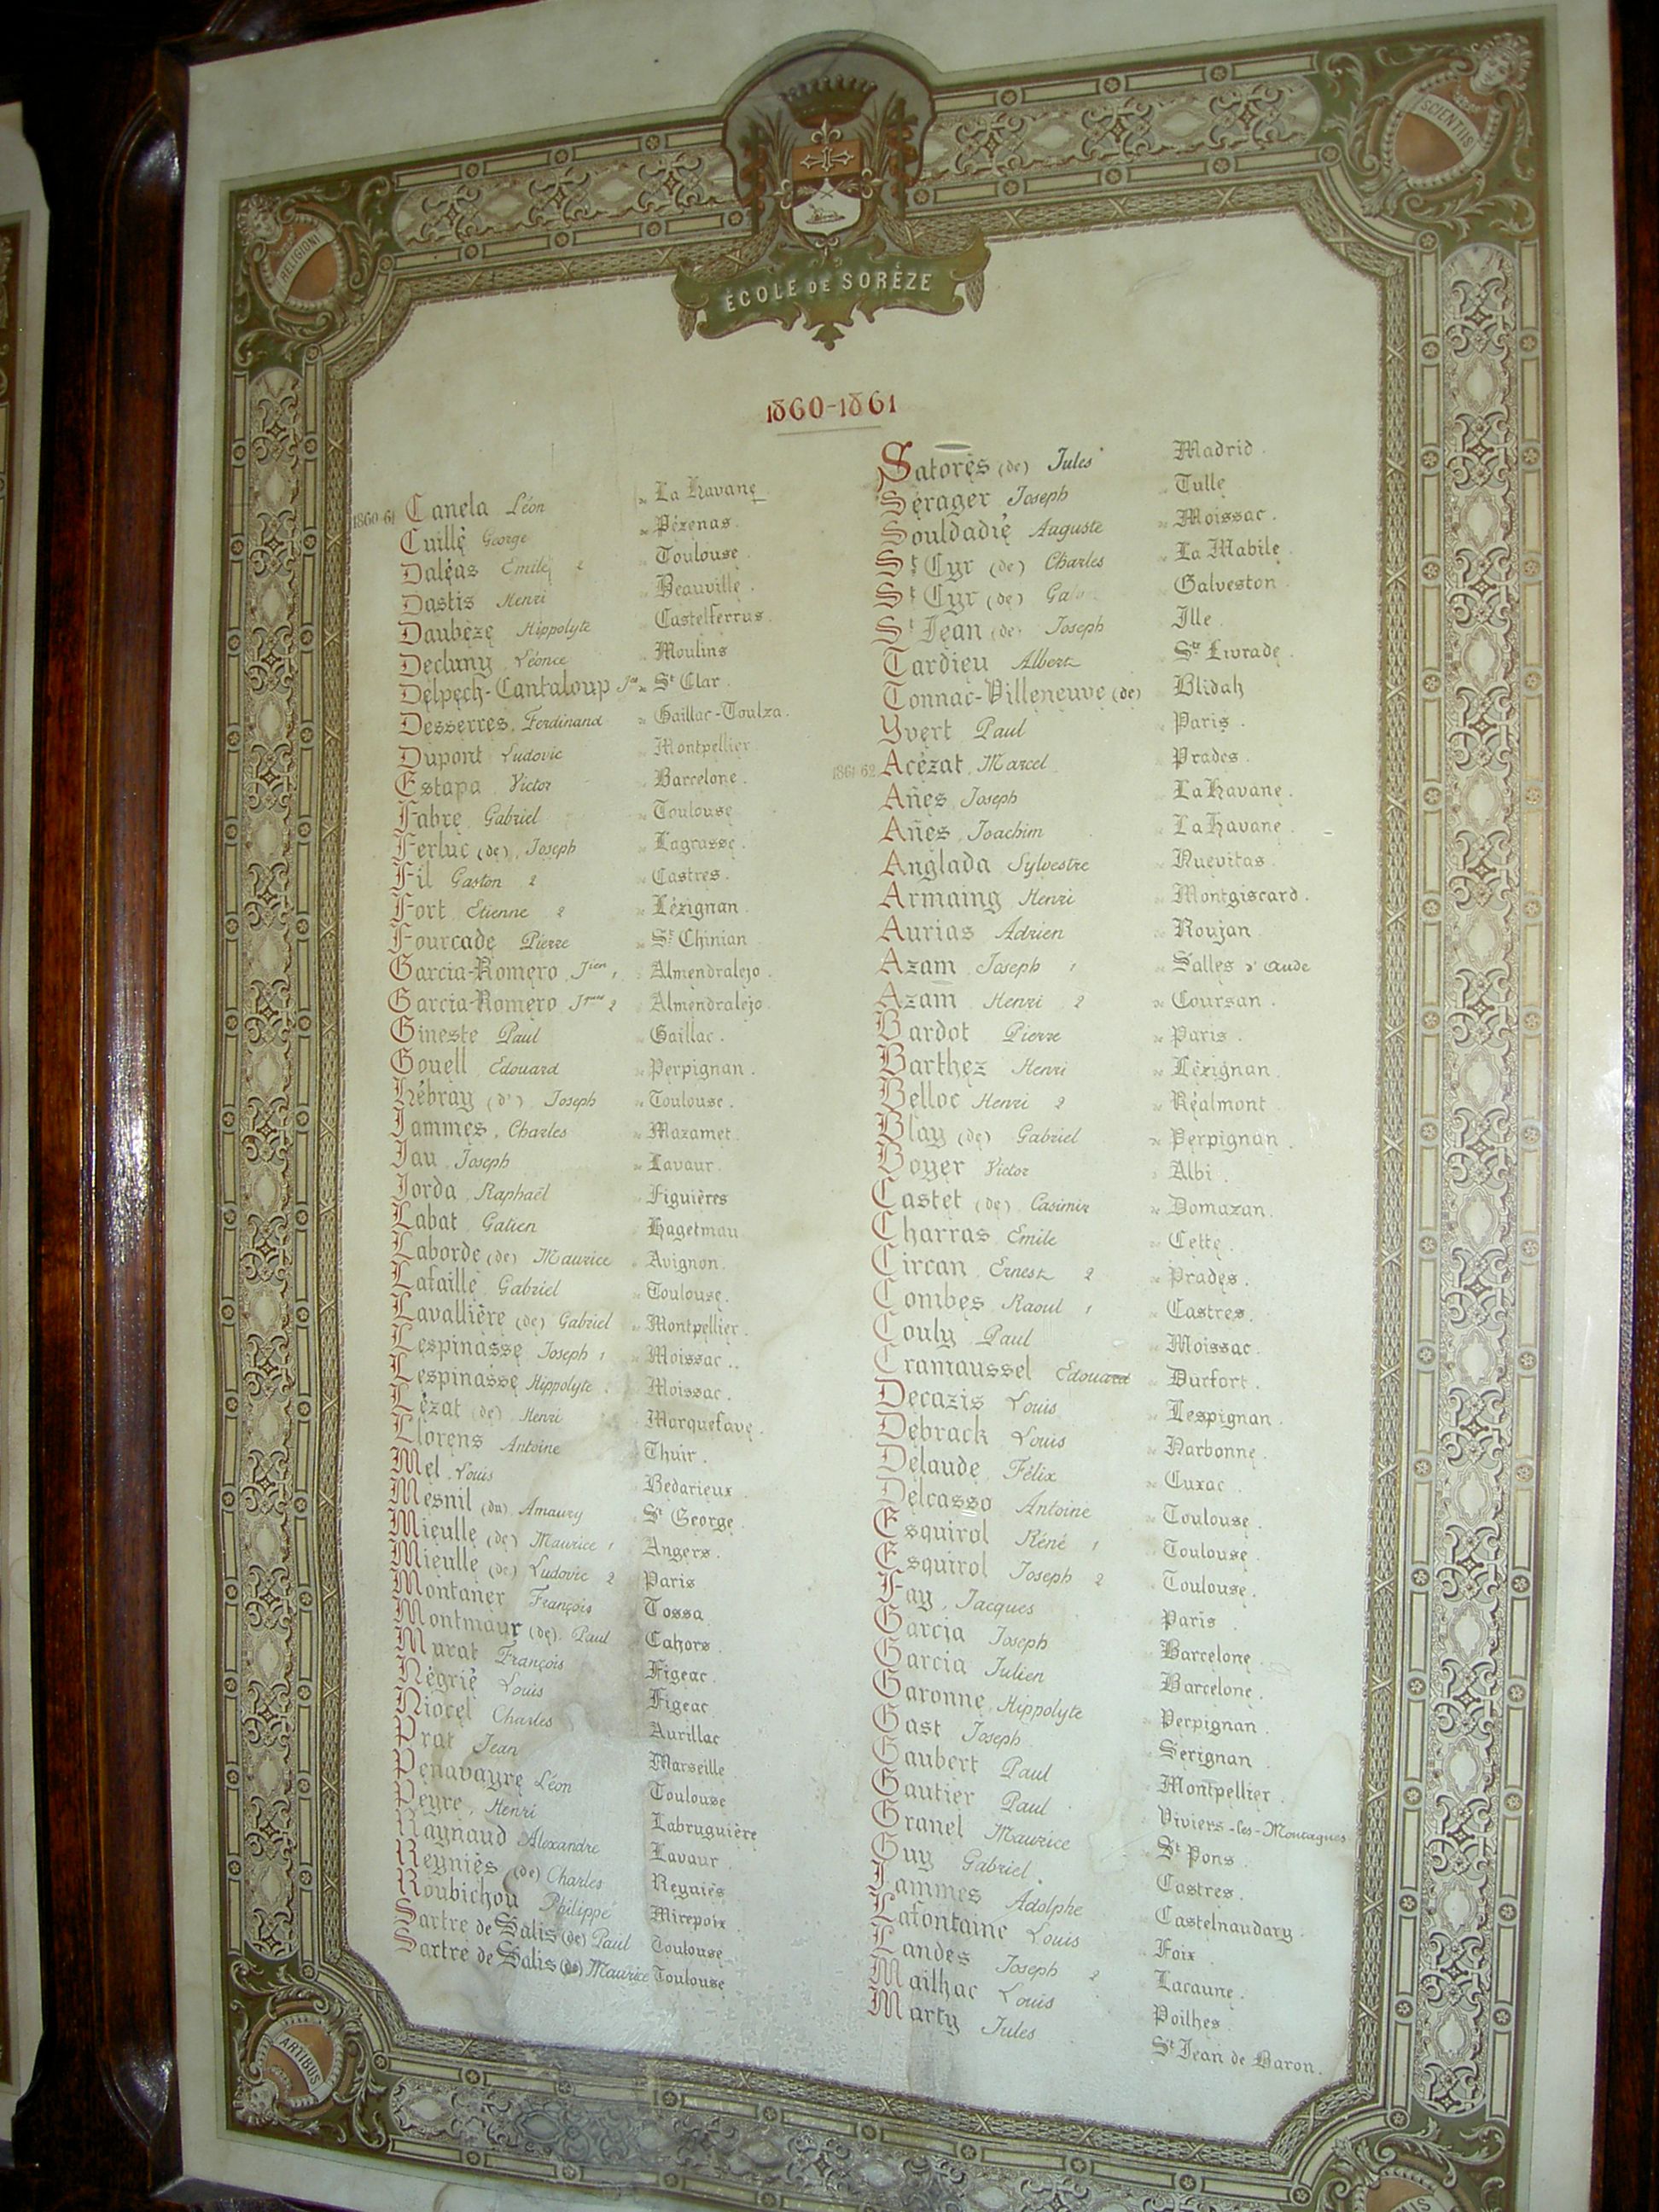 RELIGIONI
SCIENTIIS
ÉCOLE DE SORÈZE
1860-1861
1860-61 Canela Léon " La Havane
Cuillé George " Pézenas.
Daléas Emile 2 " Toulouse.
Dastis Henri " Beauville.
Daubèze Hippolyte " Castelferrus.
Decluny Léonce " Moulins
Delpech-Cantaloup " St Clar.
Desserres, Ferdinand " Gaillac-Toulza.
Dupont Ludovic " Montpellier.
Estapa Victor " Barcelone.
Fabre Gabriel " Toulouse
Ferluc (de), Joseph " Lagrasse.
Fil Gaston 2 " Castres.
Fort Etienne 2 " Lézignan.
Fourcade Pierre " St Chinian
Garcia-Romero, 1 " Almendralejo.
Garcia-Romero 2 " Almendralejo.
Gineste Paul " Gaillac.
Gouell Edouard " Perpignan.
Hébray (d'), Joseph " Toulouse.
Jammes, Charles " Mazamet.
Jau Joseph " Lavaur.
Jorda Raphaël " Figuières
Labat Gatien " Hagetmau
Laborde (de) Maurice " Avignon.
Lafaille Gabriel " Toulouse.
Lavallière (de) Gabriel " Montpellier.
Lespinasse Joseph 1 " Moissac.
Lespinasse Hippolyte " Moissac.
Lézat (de) Henri Marquefave.
Llorens Antoine Thuir.
Mel Louis Bedarieux
Mesnil (du) Amaury St George.
Mieulle (de) Maurice 1 Angers.
Mieulle (de) Ludovic 2 Paris
Montaner François Tossa
Montmaur (de) Paul Cahors.
Murat François Figeac.
Négrié Louis Figeac
Niocel Charles Aurillac
Prat Jean Marseille
Penavayre Léon Toulouse
Peyre, Henri Labruguière
Raynaud Alexandre Lavaur.
Reyniès (de) Charles Reyniès
Roubichou Philippe Mirepoix
Sartre de Salis (de) Paul Toulouse
Sartre de Salis (de) Maurice Toulouse
Satorès (de) Jules Madrid.
Sérager Joseph " Tulle
Souldadié Auguste " Moissac.
St Cyr (de) Charles " La Mabile
St Cyr (de) " Galveston
St Jean (de) Joseph " Ille.
Tardieu Albert " Ste Livrade.
Tonnac-Villeneuve (de) Blidah
Yvert Paul " Paris.
1861-62 Acézat, Marcel " Prades.
Añes Joseph " La Havane.
Añes, Joachim " La Havane
Anglada Sylvestre " Nuevitas.
Armaing Henri " Montgiscard.
Aurias Adrien " Roujan
Azam Joseph 1 " Salles d'Aude
Azam Henri 2 " Coursan.
Bardot Pierre " Paris.
Barthez Henri " Lézignan.
Belloc Henri 2 " Réalmont
Blay (de) Gabriel " Perpignan.
Boyer Victor " Albi.
Castet (de) Casimir " Domazan.
Charras Emile " Cette.
Circan Ernest 2 " Prades.
Combes Raoul 1 " Castres.
Couly Paul " Moissac.
Cramaussel Edouard " Durfort.
Decazis Louis " Lespignan.
Debrack Louis " Narbonne.
Delaude Félix " Cuxac.
Delcasso Antoine " Toulouse.
Esquirol Réné 1 " Toulouse.
Esquirol Joseph 2 " Toulouse.
Fay, Jacques " Paris.
Garcia Joseph " Barcelone.
Garcia Julien " Barcelone.
Garonne Hippolyte " Perpignan.
Gast Joseph " Serignan.
Gaubert Paul " Montpellier.
Gautier Paul Viviers-les-Montagnes
Granel Maurice " St Pons.
Guy Gabriel. " Castres.
Jammes Adolphe " Castelnaudary.
Lafontaine Louis " Foix
Landes Joseph 2 Lacaune.
Mailhac Louis Poilhes.
Marty Jules St Jean de Baron.
ARTIBUS